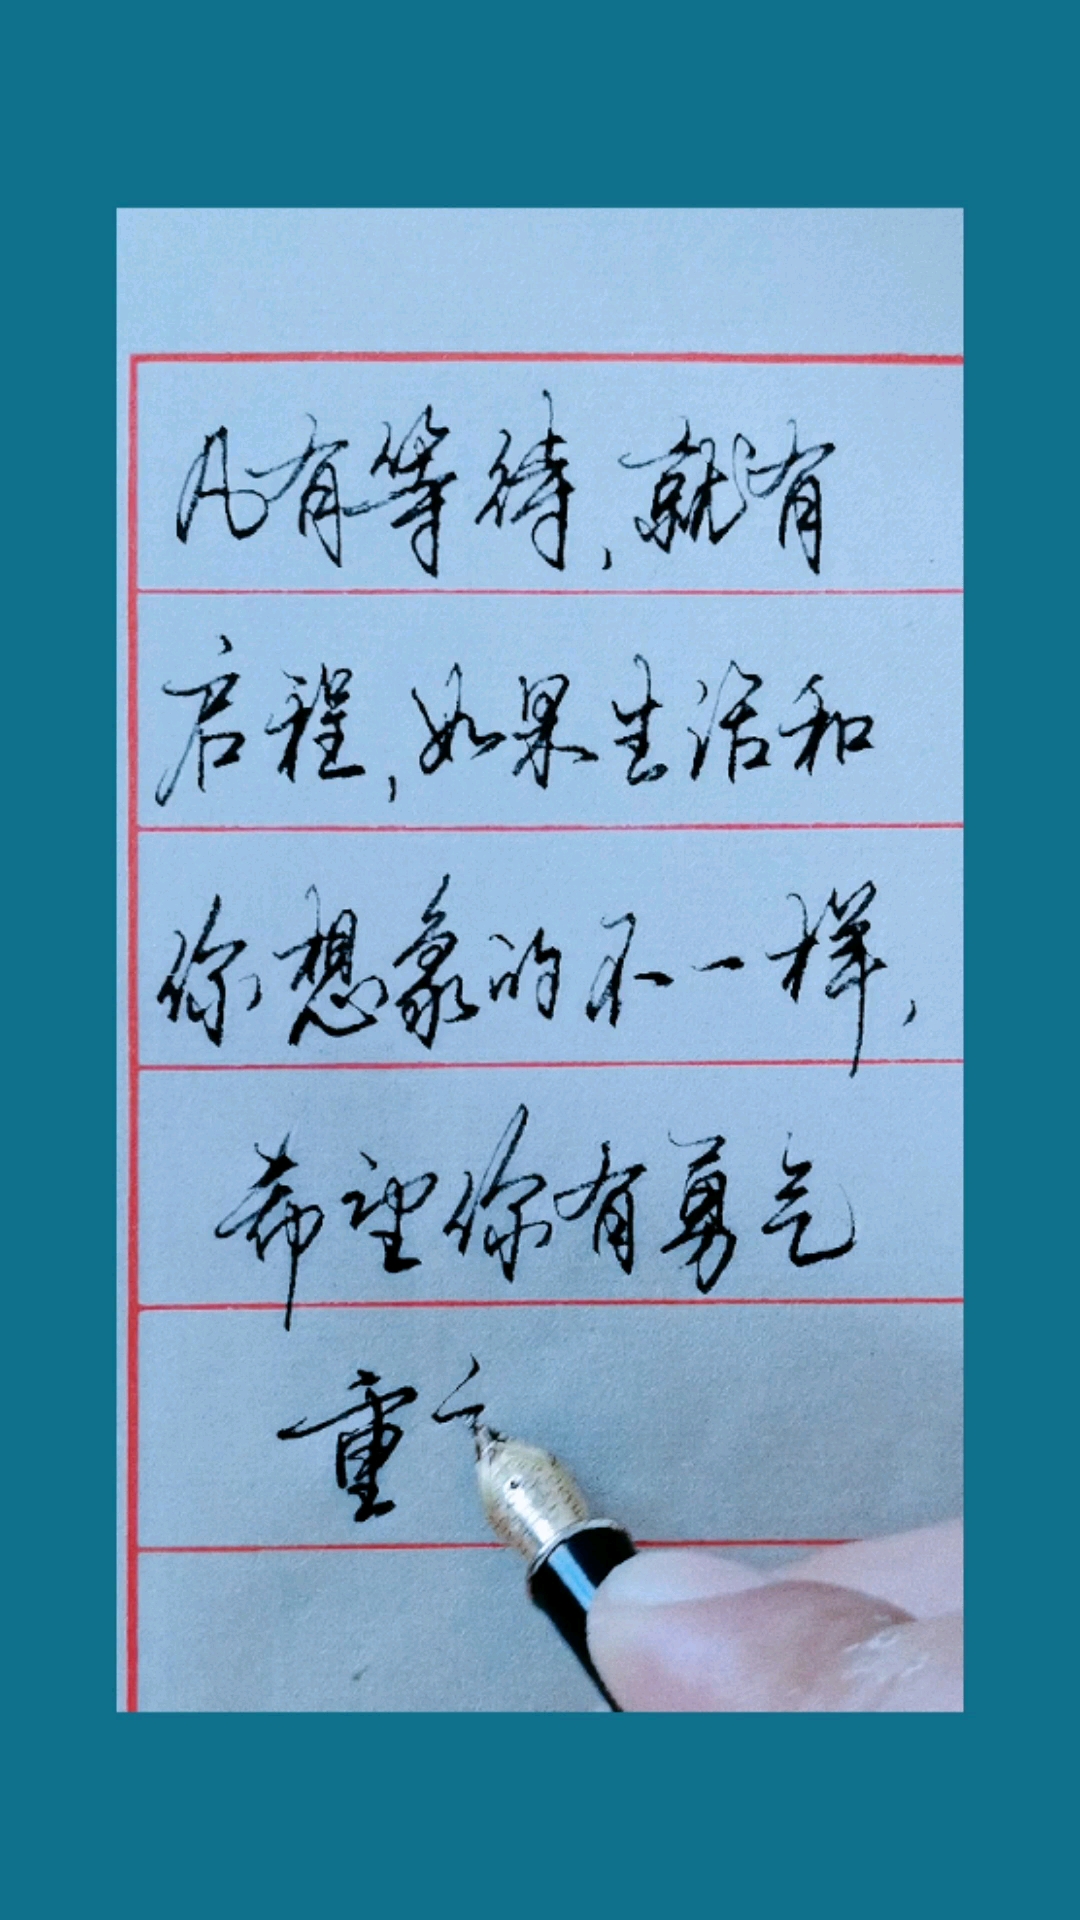 凡有等待,就有
启程,如果生活和
你想象的不一样,
希望你有勇气
重